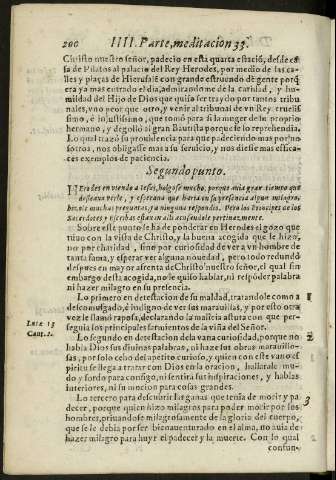 200 IIII. Parte, meditacion 33.
Christo nuestro señor, padecio en esta quarta estació, desde ca
sa de Pilatos al palacio del Rey Herodes, por medio de las ca-
lles y plaças de Hierusalé con grande estruendo de gente porq̃
era ya mas entrado el dia, admirandome de la caridad, y hu-
mildad del Hijo de Dios que quiso ser traydo por tantos tribu
nales, vno peor que otro, y venir al tribunal de vn Rey cruelis
simo, è injustissimo, que tomò para si la muger de su proprio
hermano, y degollò al gran Bautista porque se lo reprehendia.
Lo qual traçò su prouidencia para que padeciendo mas por no
sotros, nos obligasse mas a su seruicio, y nos diesse mas effica-
ces exemplos de paciencia.
Segundo punto.
HErodes en viendo a Iesus, holgose mucho, porque auia gran tiempo que
desseaua verle, y esperaua que haria en su presencia algun milagro,
hizole muchas preguntas, y a ninguna respondio. Pero los Principes de los
Sacerdotes y escribas estauan alli acusandole pertinazmente.
Sobre este punto se ha de ponderar en Herodes el gozo que
tuuo con la vista de Christo, y la buena acogida que le hizo,
no por charidad, sino por curiosidad de ver a vn hombre de
tanta fama, y esperar ver alguna nouedad, pero todo redundò
despues en mayor afrenta de Christo nuestro señor, el qual sin
embargo desta acogida, no le quiso hablar, ni respòder palabra
ni hazer milagro en su presencia.
Lo primero en detestacion de su maldad, tratandole como a 1
descomulgado, è indigno de ver sus marauillas, y por esto otra
Luc. 13 vez le llamò raposa, declarando la malicia astuta con que per-
Cant. 2. seguia los principales sarmientos de la viña del Señor.
Lo segundo en detestacion de la vana curiosidad, porque no 2
habla Dios sus diuinas palabras, ni haze sus obras marauillo-
sas, por solo cebo del apetito curioso, y quien con este vano es
piritu se llega a tratar con Dios en la oracion, hallarale mu-
do y sordo para consigo, ni sentirà sus inspiraciones, y hablas
interiores, ni su mocion para cosas grandes.
Lo tercero para descubrir las ganas que tenia de morir y pa 3
decer, porque quien hizo milagros para poder morir por los
hombres, priuandose milagrosamente de la gloria del cuerpo,
que se le debia por ser bienauenturado en el alma, no auia de
hazer milagro para huyr el padecer y la muerte. Con lo qual
confun-